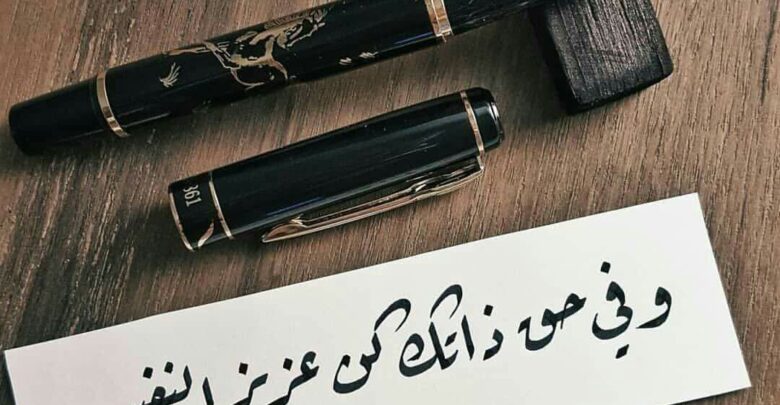 361
وفي حق ذاتك كن عزيز النفـ